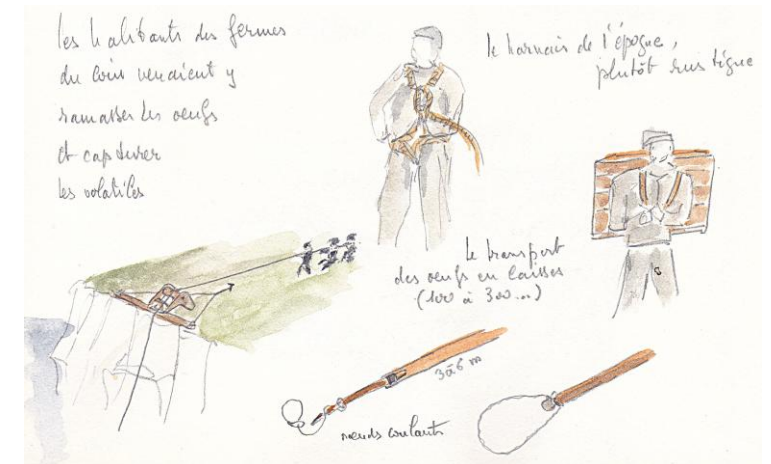 les habitants des fermes
du coin venaient y
ramasser les oeufs
et capturer
les volatiles
le harnais de l'époque,
plutôt rustique
le transport
des oeufs en caisses
(100 à 300...)
3 à 6 m
noeuds coulants